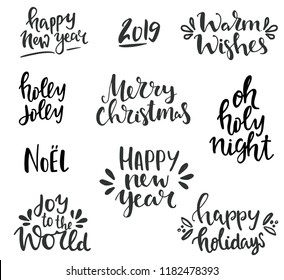 happy
new year
2019
Warm
Wishes
holey
joley
Merry
Christmas
oh
holy
night
NoËl
Happy
new
year
Joy
to the
World
happy
holidays
shutterstock.com · 1182478393